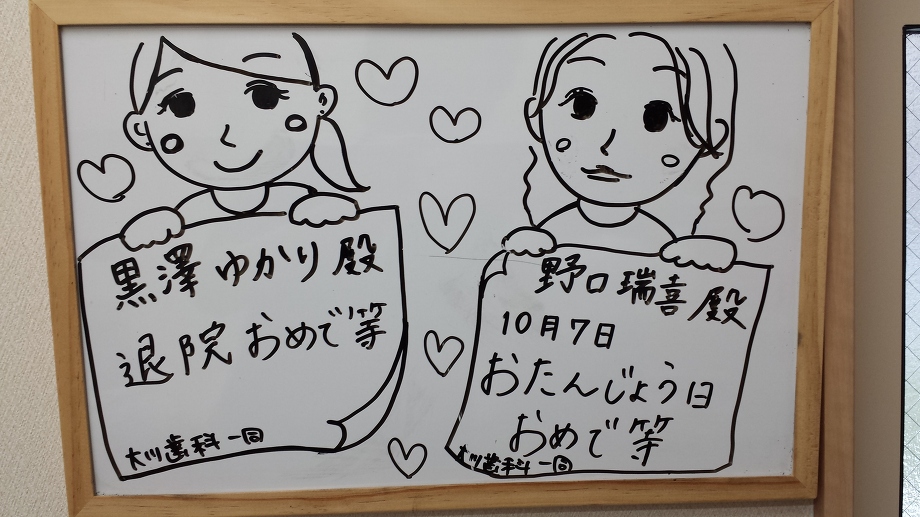 黒澤ゆかり殿
退院おめで等
大川歯科一同
野口瑞喜殿
10月7日
おたんじょう日
おめで等
大川歯科一同